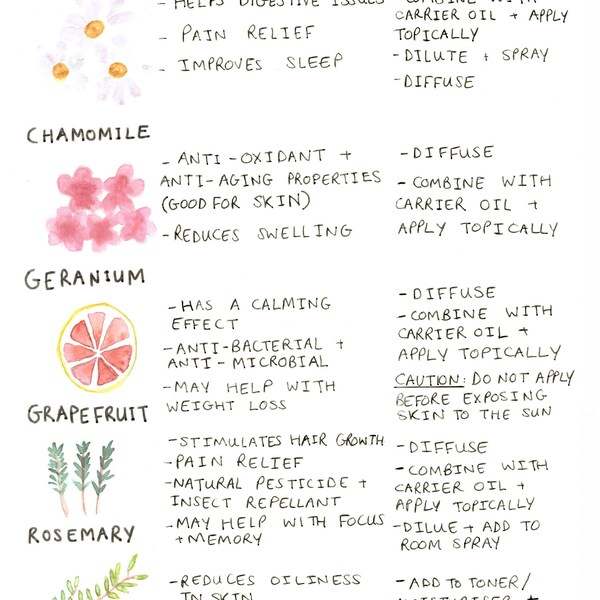 - HELPS DIGESTIVE ISSUES
- PAIN RELIEF
- IMPROVES SLEEP
- COMBINE WITH
CARRIER OIL + APPLY
TOPICALLY
- DILUTE + SPRAY
- DIFFUSE
CHAMOMILE
- ANTI-OXIDANT +
ANTI-AGING PROPERTIES
(GOOD FOR SKIN)
- REDUCES SWELLING
- DIFFUSE
- COMBINE WITH
CARRIER OIL +
APPLY TOPICALLY
GERANIUM
- HAS A CALMING
EFFECT
- ANTI-BACTERIAL +
ANTI-MICROBIAL
- MAY HELP WITH
WEIGHT LOSS
- DIFFUSE
- COMBINE WITH
CARRIER OIL +
APPLY TOPICALLY
CAUTION: DO NOT APPLY
BEFORE EXPOSING
SKIN TO THE SUN
GRAPEFRUIT
- STIMULATES HAIR GROWTH
- PAIN RELIEF
- NATURAL PESTICIDE +
INSECT REPELLANT
- MAY HELP WITH FOCUS
+ MEMORY
- DIFFUSE
- COMBINE WITH
CARRIER OIL +
APPLY TOPICALLY
- DILUE + ADD TO
ROOM SPRAY
ROSEMARY
- REDUCES OILINESS
IN SKIN
- ADD TO TONER/
MOISTURISER +